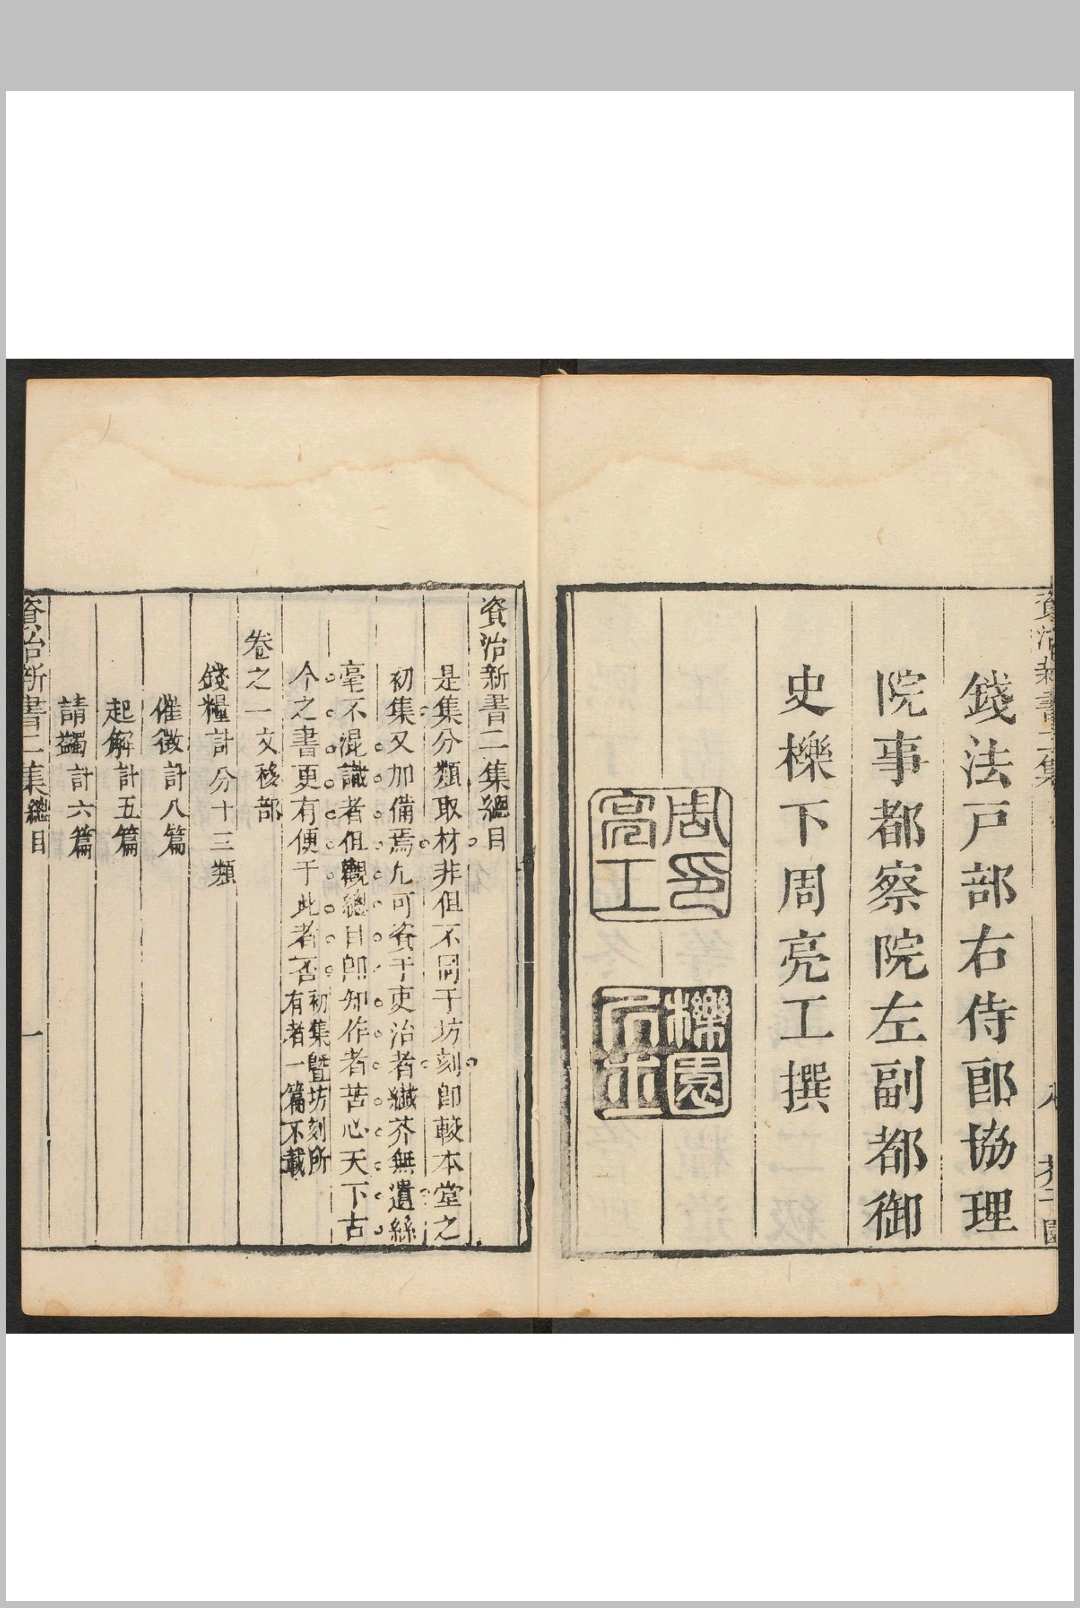 錢法戸部右侍郎協理
院事都察院左副都御
史櫟下周亮工撰
周亮工印
櫟園
資治新書二集總目
是集分類取材非但不同于坊刻即較本堂之
初集又加備焉凡可資于吏治者纖芥無遺絲
毫不混識者但觀總目即知作者苦心天下古
今之書更有便于此者否初集曁坊刻所
有者一篇不載
卷之一文移部
錢糧計分十三類
催徴計八篇
起解計五篇
請蠲計六篇
資治新書二集 總目 一